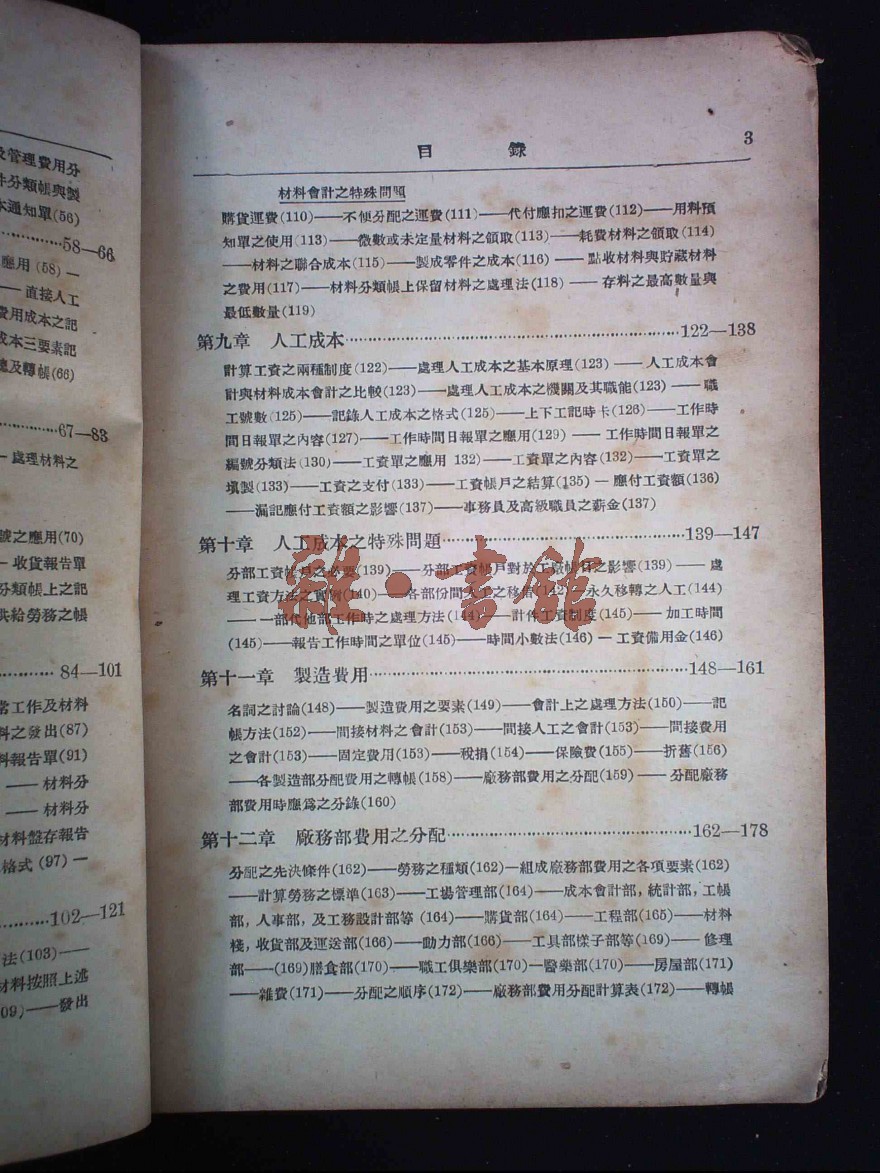 及管理費用分
件分類帳與製
本通知單(56)
58—66
應用 (58) —
—— 直接人工
費用成本之記
成本三要素記
總及轉帳(66)
67—83
— 處理材料之
號之應用(70)
— 收貨報告單
分類帳上之記
共給勞務之帳
84—101
常工作及材料
料之發出(87)
料報告單(91)
—— 材料分
—— 材料分
材料盤存報告
格式 (97) —
102—121
法(103)——
材料按照上述
09)——發出
目 錄 3
材料會計之特殊問題
購貨運費(110)——不便分配之運費(111)——代付應扣之運費(112)——用料預
知單之使用(113)——微數或未定量材料之領取(113)——耗費材料之領取(114)
——材料之聯合成本(115)——製成零件之成本(116) —— 點收材料與貯蔵材料
之費用(117)——材料分類帳上保留材料之處理法(118) —— 存料之最高數量與
最低數量(119)
第九章 人工成本 122—138
計算工資之兩種制度(122)——處理人工成本之基本原理(123) —— 人工成本會
計與材料成本會計之比較(123)——處理人工成本之機關及其職能(123) —— 職
工號數(125)——記錄人工成本之格式(125)——上下工記時卡(126)——工作時
間日報單之內容(127)——工作時間日報單之應用(129) —— 工作時間日報單之
編號分類法(130)——工資單之應用 132)——工資單之內容(132)——工資單之
塡製(133)——工資之支付(133)——工資帳戶之結算(135)— 應付工資額(136)
——漏記應付工資額之影響(137)——事務員及高級職員之薪金(137)
第十章 人工成本之特殊問題 139—147
分部工資帳戶之必要(139)——分部工資帳戶對於工廠帳目之影響(139)—— 處
理工資方法之實例(140)——各部份間人工之移借(142)—永久移轉之人工(144)
—— 一部代他部工作時之處理方法(144)——計件工資制度(145)—— 加工時間
(145)——報告工作時間之單位(145)——時間小數法(146)— 工資備用金(146)
第十一章 製造費用 148—161
名詞之討論(148)——製造費用之要素(149)——會計上之處理方法(150)——記
帳方法(152)——間接材料之會計(153)——間接人工之會計(153)——間接費用
之會計(153)——固定費用(153)——稅捐(154)——保險費(155)——折舊(156)
——各製造部分配費用之轉帳(158)——廠務部費用之分配(159) —— 分配廠務
部費用時應爲之分錄(160)
第十二章 廠務部費用之分配 162—178
分配之先決條件(162)——勞務之種類(162)—組成廠務部費用之各項要素(162)
——計算勞務之標準(163)——工場管理部(164)——成本會計部，統計部，工帳
部，人事部，及工務設計部等 (164)——購貨部(164)——工程部(165)——材料
棧，收貨部及運送部(166)——動力部(166)——工具部樣子部等(169)—— 修理
部——(169)膳食部(170)——職工俱樂部(170)—醫藥部(170)——房屋部(171)
——雜費(171)——分配之順序(172)——廠務部費用分配計算表(172)——轉帳
雜·書館